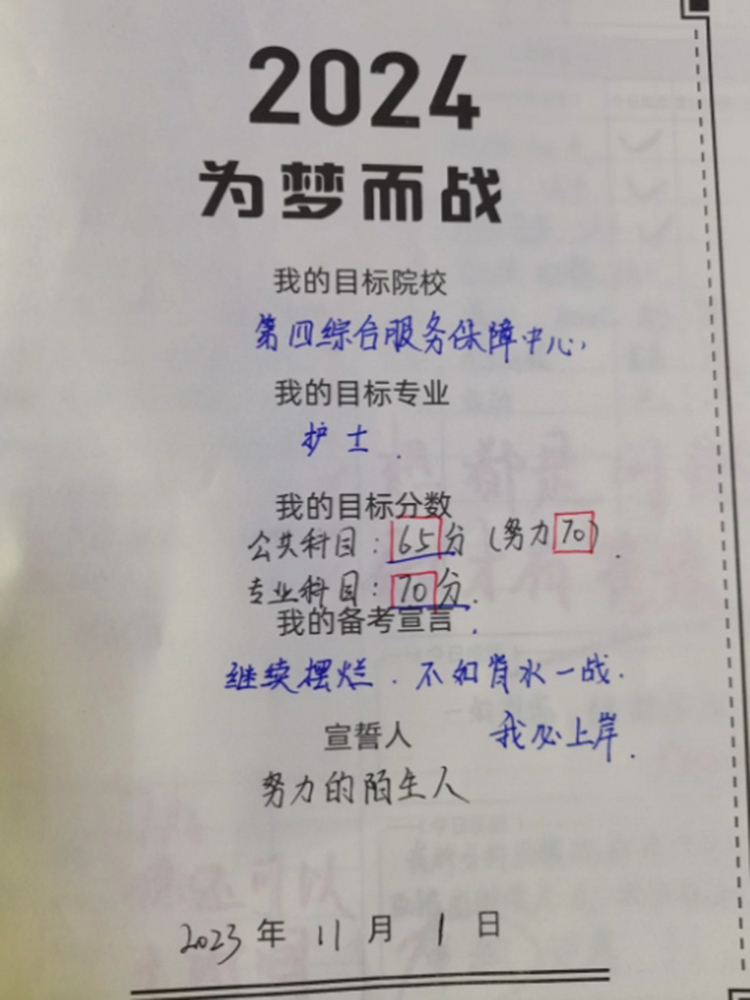 2024
为梦而战
我的目标院校
第四综合服务保障中心,
我的目标专业
护士.
我的目标分数
公共科目:65分(努力70).
专业科目:70分.
我的备考宣言.
继续摆烂.不如背水一战.
宣誓人 我必上岸.
努力的陌生人
2023年11月1日